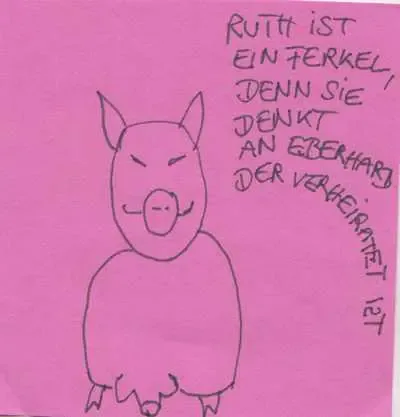 RUTH IST
EIN FERKEL,
DENN SIE
DENKT
AN EBERHARD
DER VERHEIRATET IST